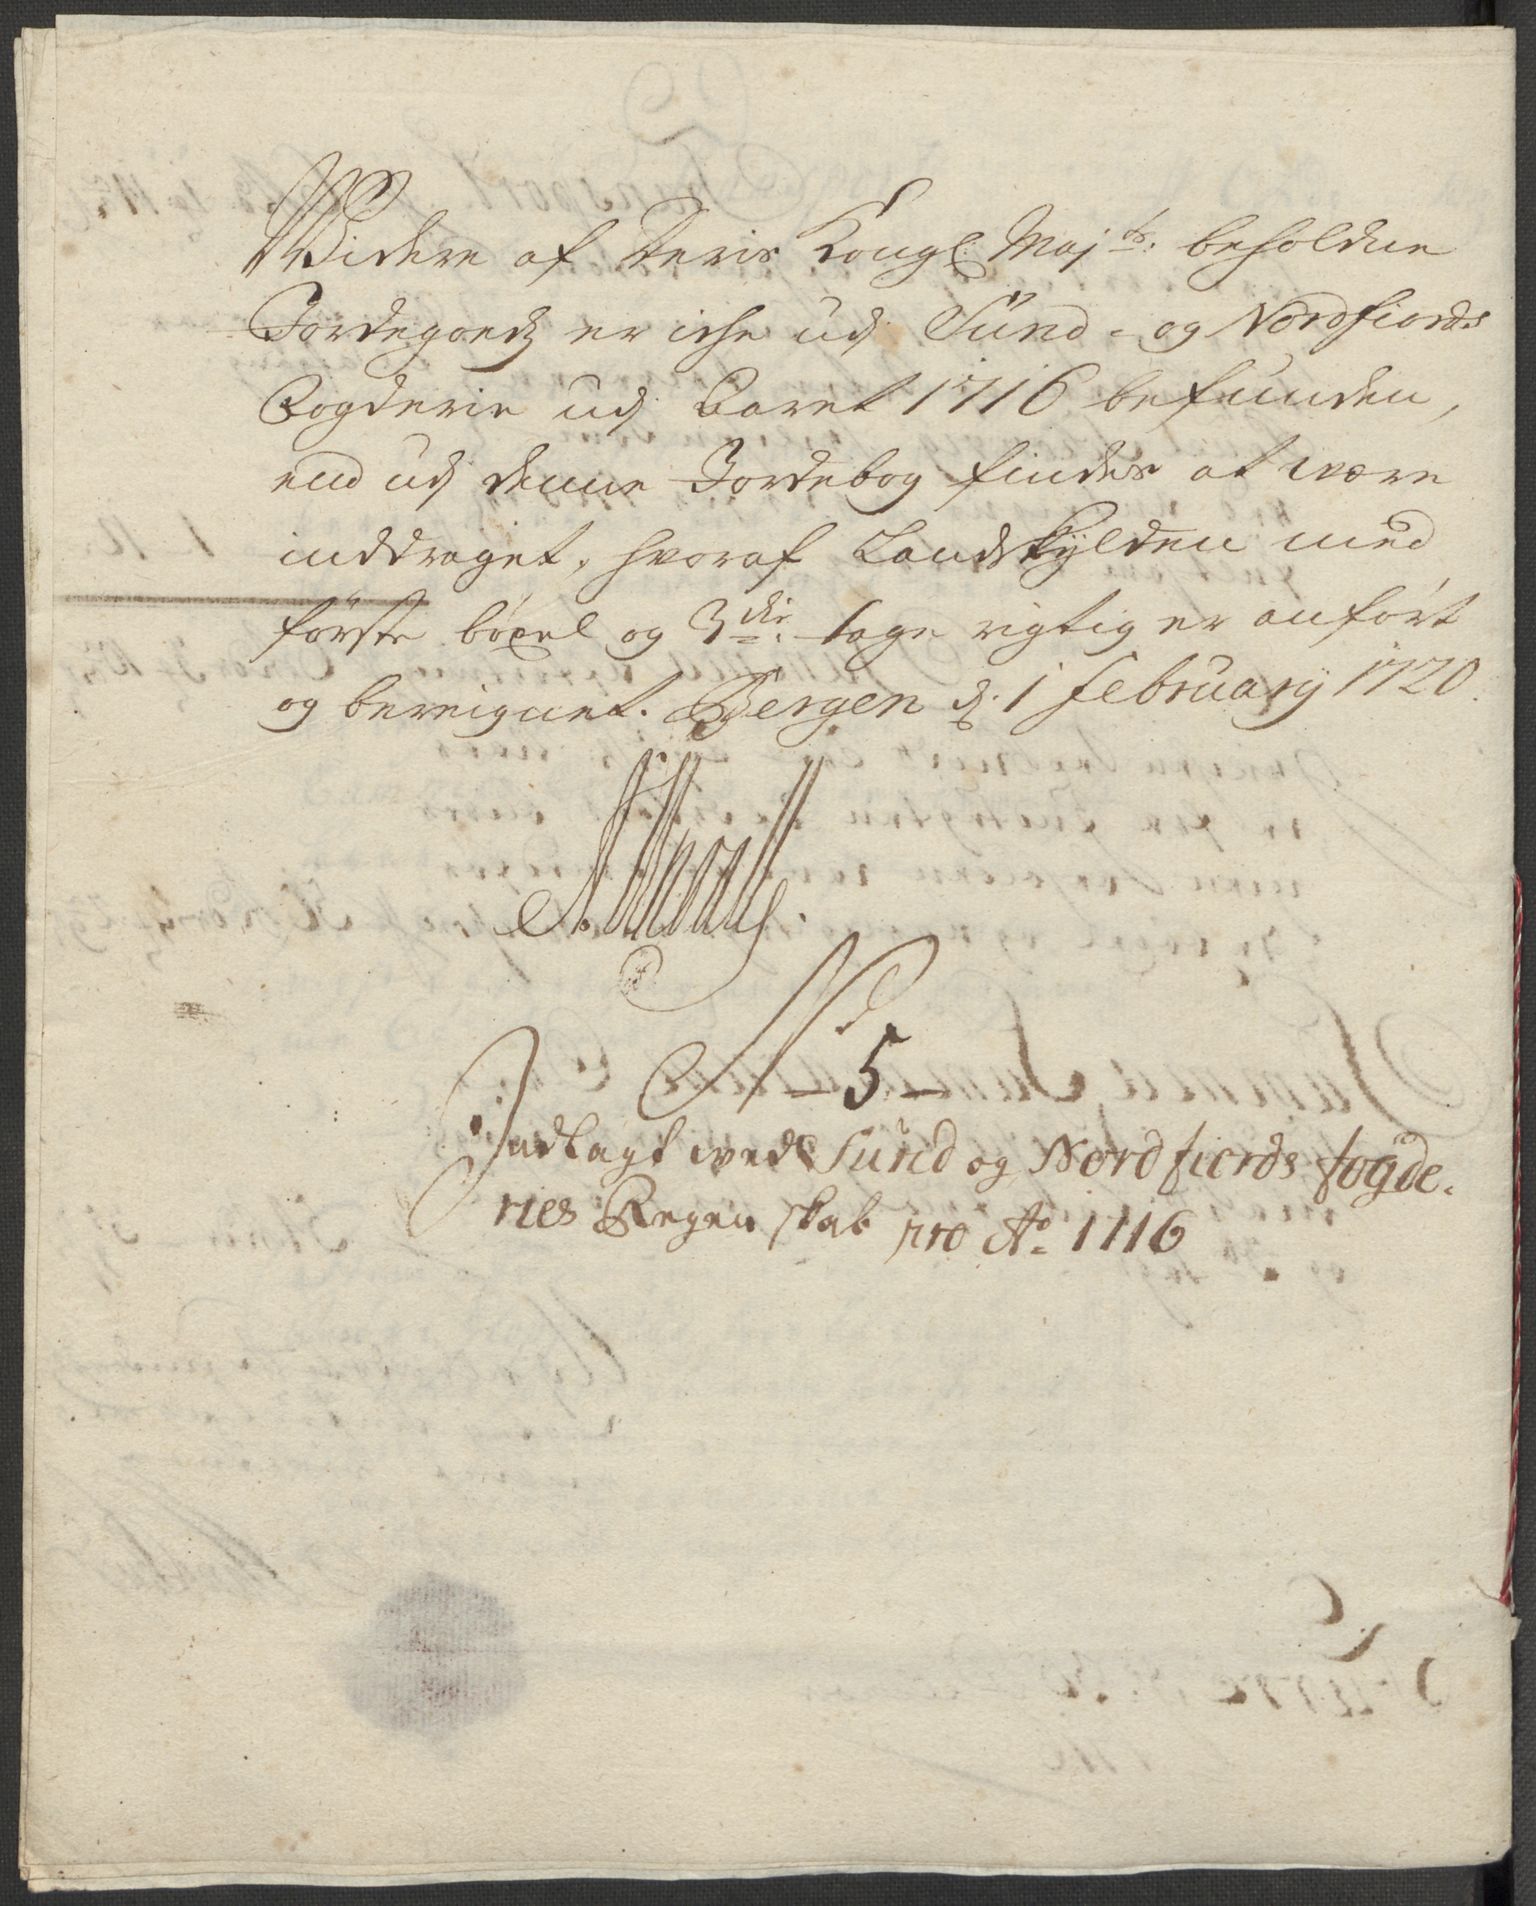 Widere af Deris Kongl: Maj:ts: beholdne
Jordegoedz er iche udj Sund- og Nordfiords
Fogderie udj Aaret 1716 befunden,
end udj denne Jordebog findes at være
inddraget, hvoraf Landskylden med
første böxel og 3die tage rigtig er anført
og bereignet. Bergen d: 1 february 1720.
N 5
Indlagt wed Sund og Nordfiords fogde-
ries Regenskab pro Ao 1716